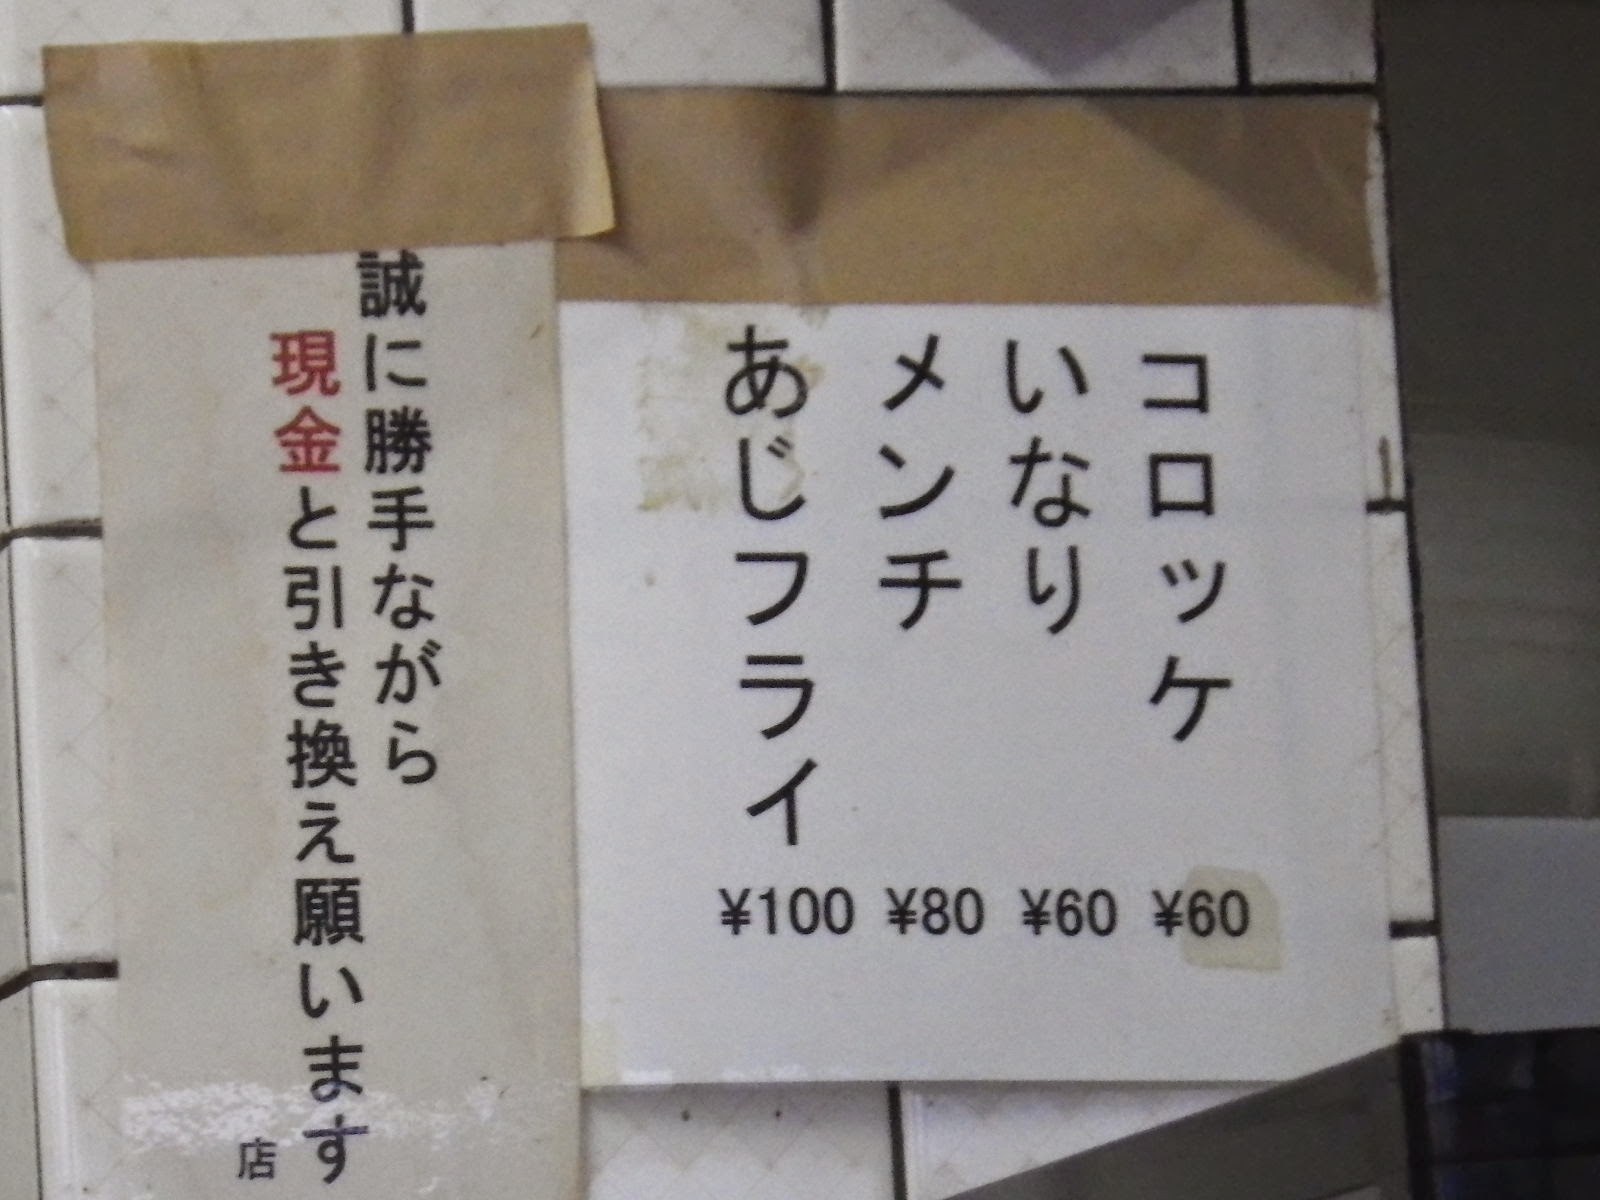 コロッケ ¥60
いなり ¥60
メンチ ¥80
あじフライ ¥100
誠に勝手ながら
現金と引き換え願います
店